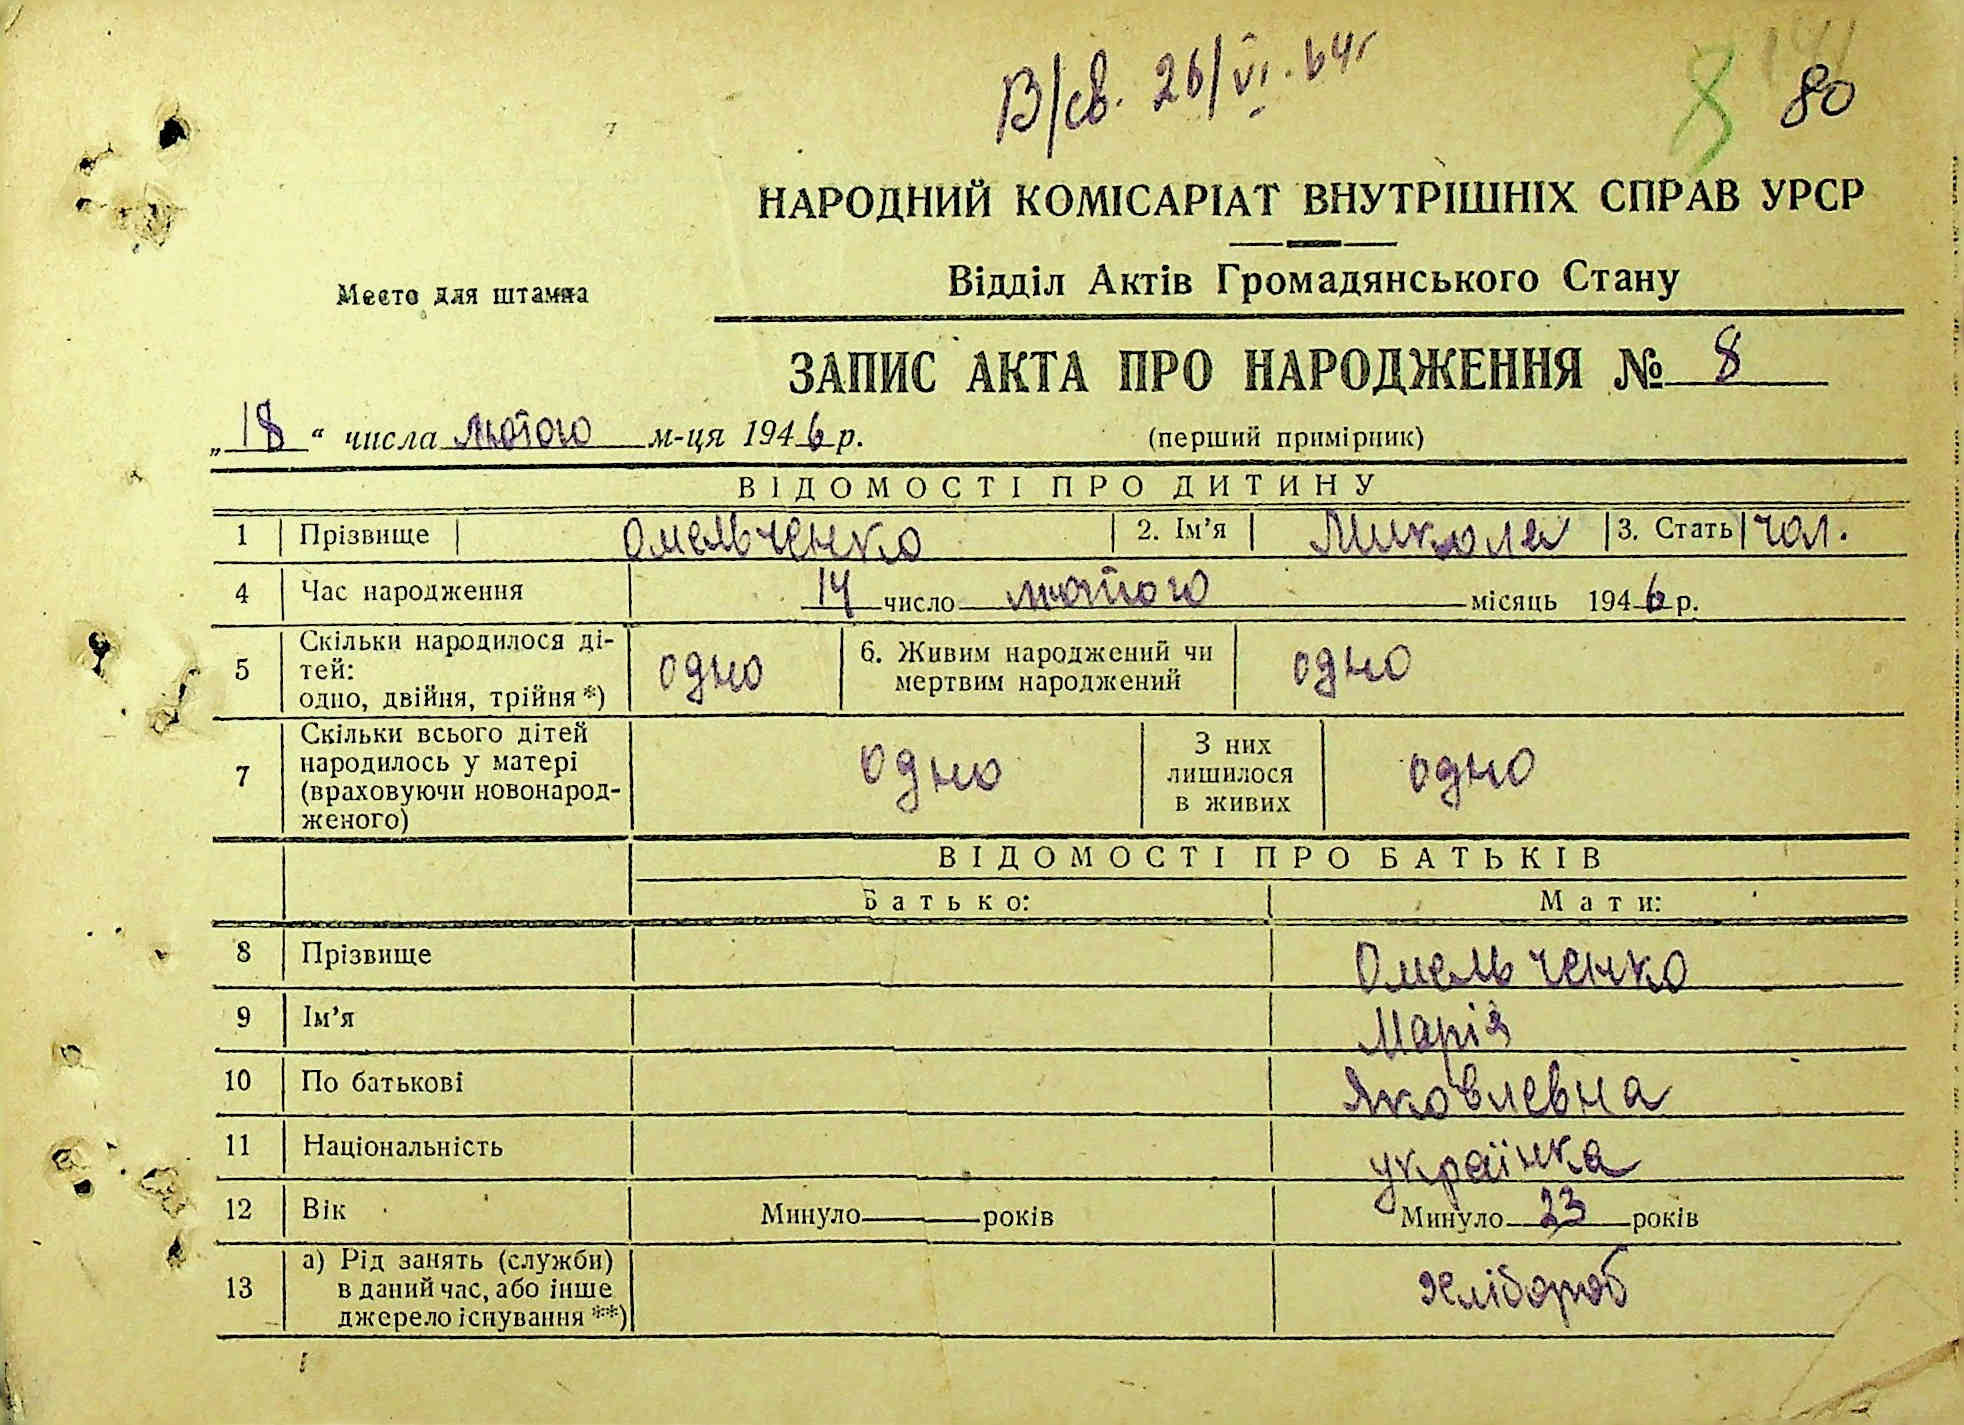 В/св. 26/VI.64г
8 80
НАРОДНИЙ КОМІСАРІАТ ВНУТРІШНІХ СПРАВ УРСР
Место для штампа
Відділ Актів Громадянського Стану
ЗАПИС АКТА ПРО НАРОДЖЕННЯ № 8
„18“ числа лютого м-ця 1946 р. (перший примірник)
ВІДОМОСТІ ПРО ДИТИНУ
1 Прізвище Омельченко 2. Ім'я Микола 3. Стать чол.
4 Час народження 14 число лютого місяць 1946 р.
5 Скільки народилося ді-
тей:
одно, двійня, трійня *) одно 6. Живим народжений чи
мертвим народжений одно
7 Скільки всього дітей
народилось у матері
(враховуючи новонарод-
женого) одно З них
лишилося
в живих одно
ВІДОМОСТІ ПРО БАТЬКІВ
Батько: Мати:
8 Прізвище Омельченко
9 Ім'я Марія
10 По батькові Яковлевна
11 Національність українка
12 Вік Минуло років Минуло 23 років
13 а) Рід занять (служби)
в даний час, або інше
джерело існування **) хлібороб